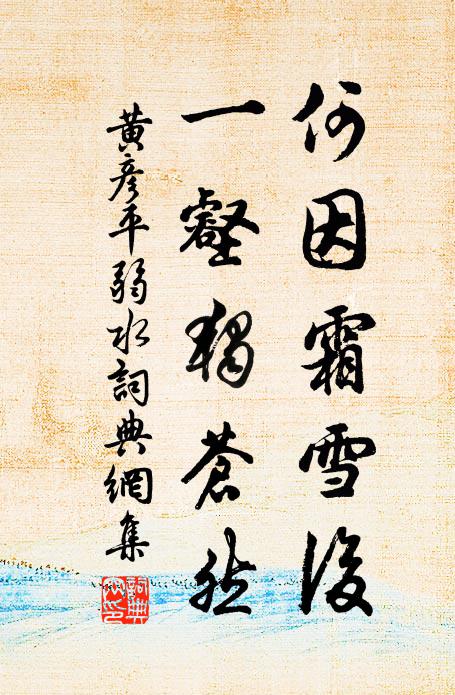 何因霜雪後
一壑獨蒼然
黃彥平弱水詞典網集